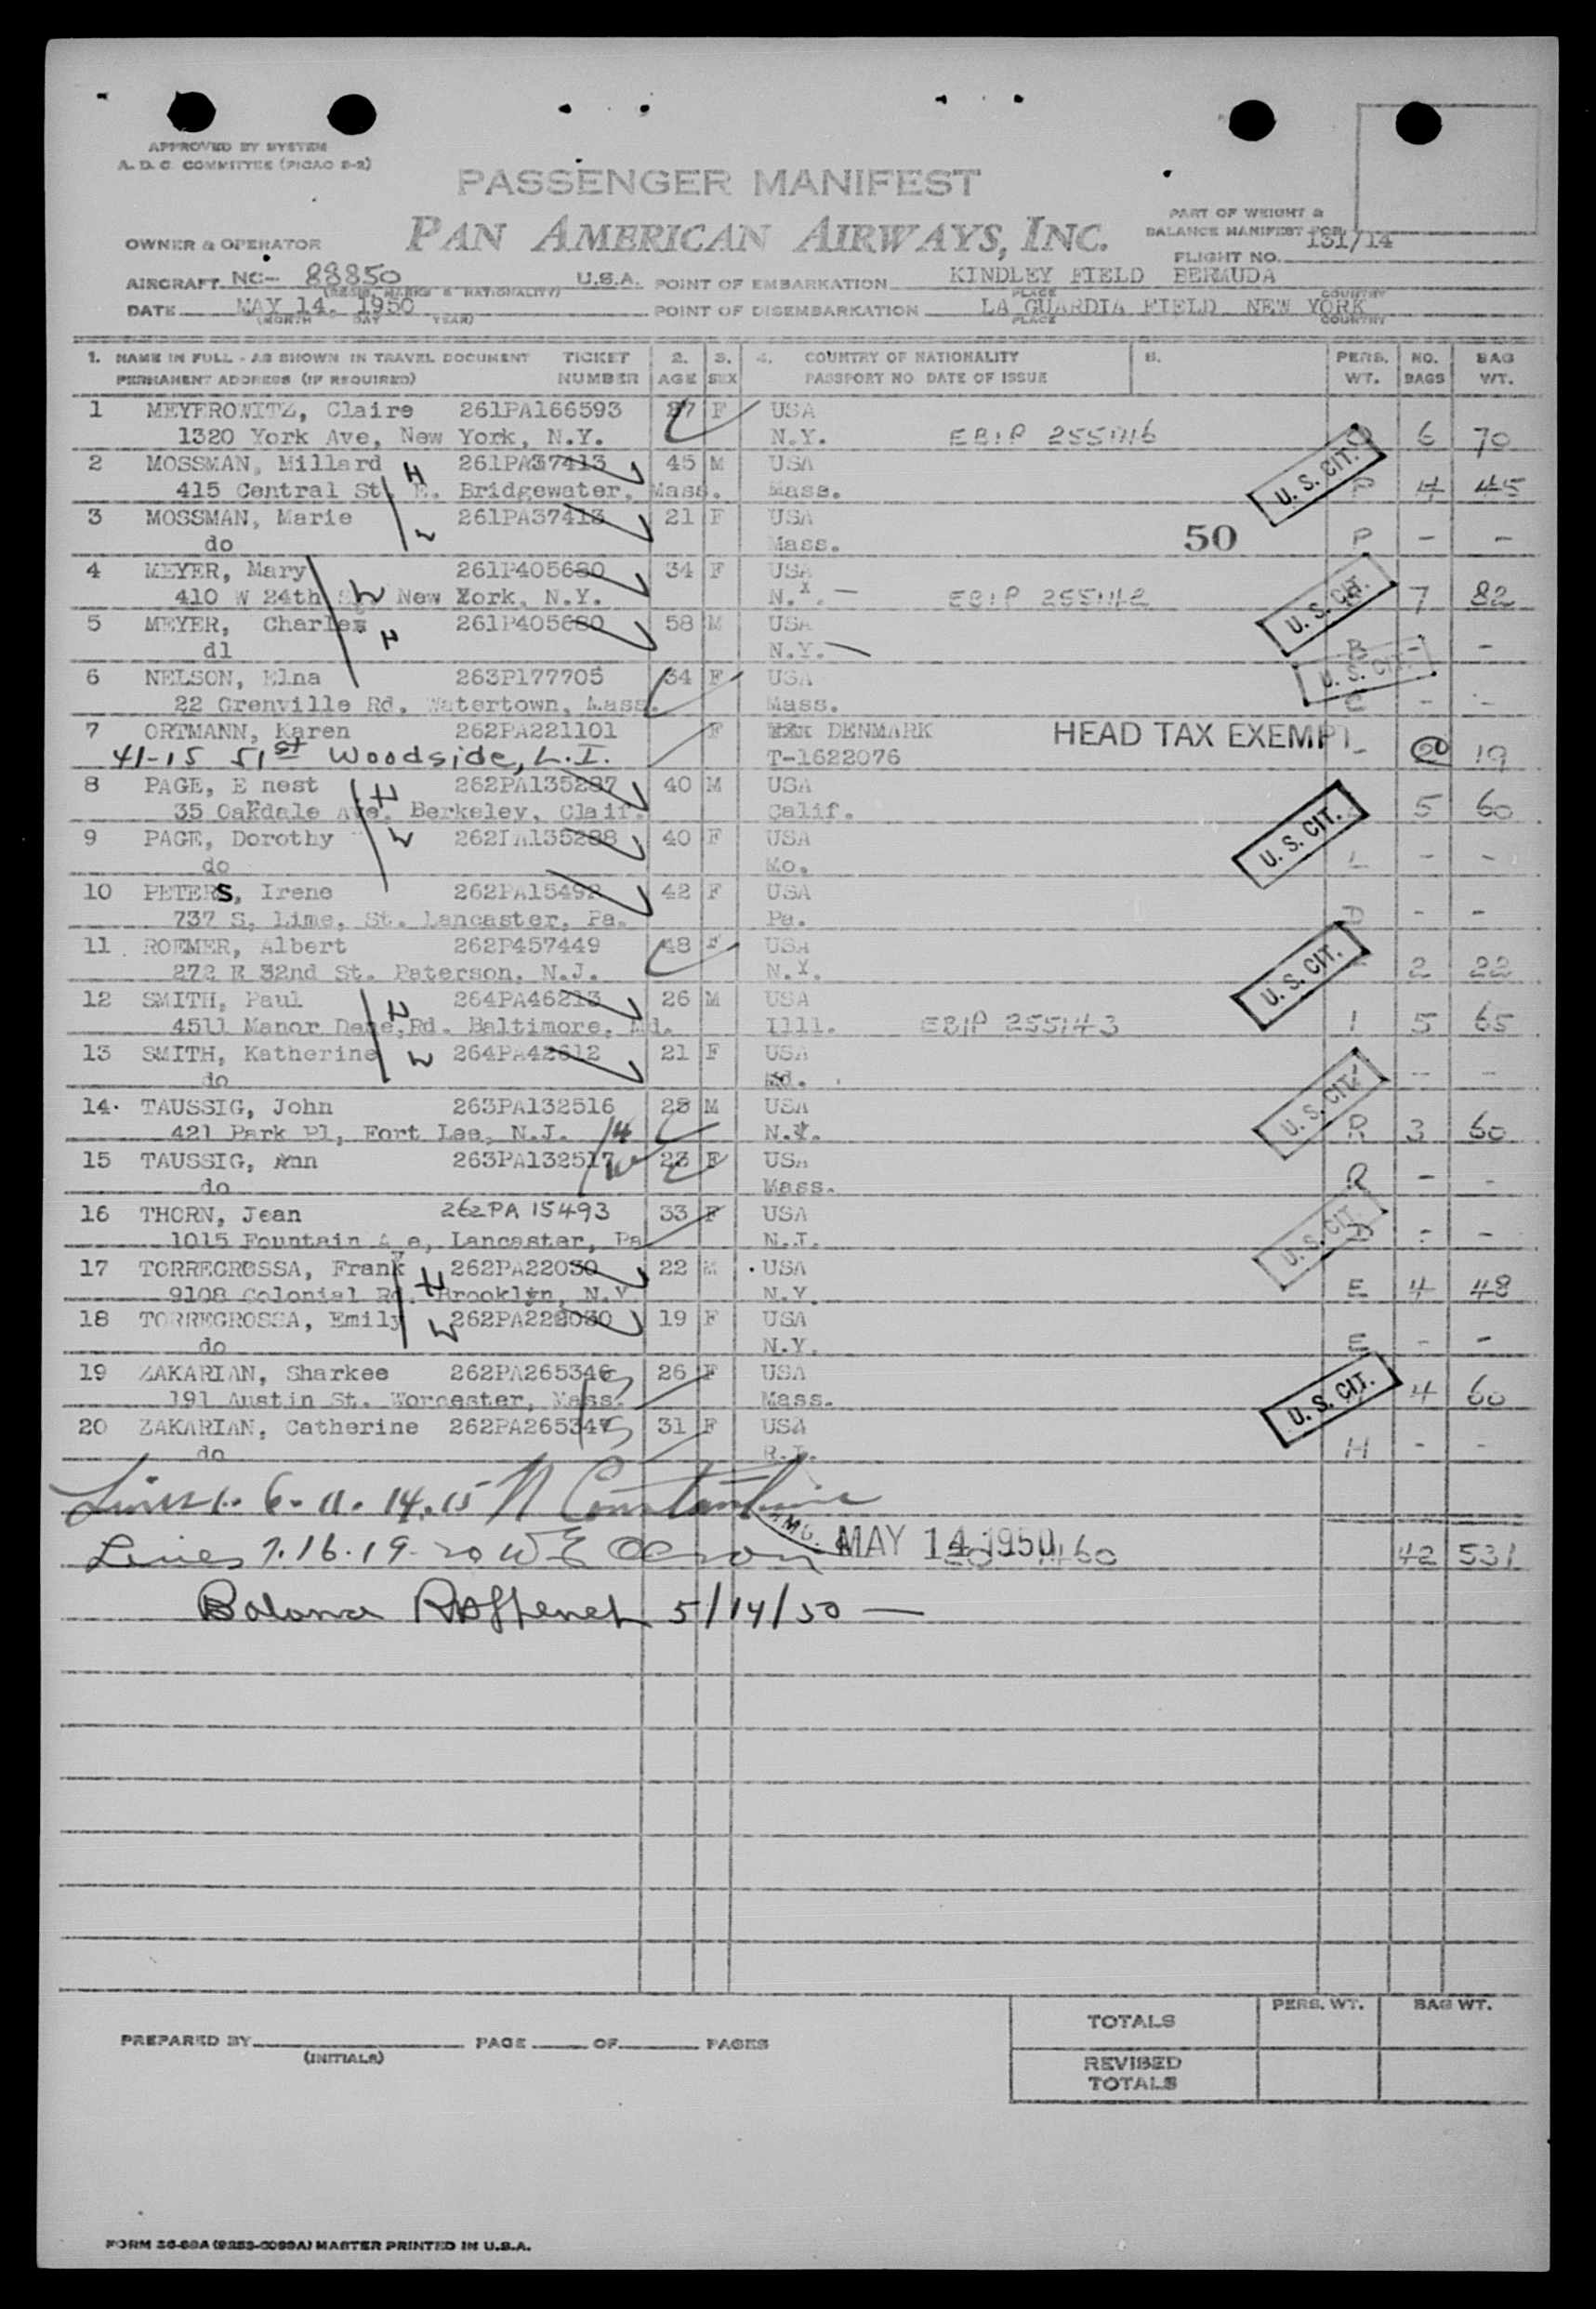 APPROVED BY SYSTEM
A. D. C. COMMITTEE (PICAO S-2)
PASSENGER MANIFEST
PAN AMERICAN AIRWAYS, INC.
PART OF WEIGHT &
BALANCE MANIFEST FOR
131/14
FLIGHT NO.
OWNER & OPERATOR
AIRCRAFT NC- 88850 U.S.A. POINT OF EMBARKATION KINDLEY FIELD BERMUDA
(REGIS. MARKS & NATIONALITY) PLACE COUNTRY
DATE MAY 14, 1950 POINT OF DISEMBARKATION LA GUARDIA FIELD NEW YORK
(MONTH DAY YEAR) PLACE COUNTRY
1. NAME IN FULL - AS SHOWN IN TRAVEL DOCUMENT TICKET 2. 3. 4. COUNTRY OF NATIONALITY PERS. NO. BAG
PERMANENT ADDRESS (IF REQUIRED) NUMBER AGE SEX PASSPORT NO DATE OF ISSUE WT. BAGS WT.
1 MEYEROWITZ, Claire 261PA166593 F USA
1320 York Ave, New York, N.Y. N.Y. 6 70
2 MOSSMAN, Millard H 261PA37413 45 M USA U. S. CIT.
415 Central St. E. Bridgewater, Mass. Mass. P 4 45
3 MOSSMAN, Marie W 261PA37413 21 F USA 50
do Mass. P - -
4 MEYER, Mary 261P405680 34 F USA U. S. CIT.
410 W 24th St. W New York, N.Y. N.Y. — EBIP 255142 7 82
5 MEYER, Charles H 261P405680 58 M USA
dl N.Y. — R - -
6 NELSON, Elna 263P177705 34 F USA U. S. CIT.
22 Grenville Rd, Watertown, Mass. Mass. - -
7 ORTMANN, Karen 262PA221101 F DENMARK HEAD TAX EXEMPT
41-15 51st Woodside, L.I. T-1622076 19
8 PAGE, E nest H 262PA135287 40 M USA U. S. CIT.
35 Oakdale Ave. Berkeley, Claif. Calif. 5 60
9 PAGE, Dorothy W 262PA135288 40 F USA
do Mo. L - -
10 PETERS, Irene 262PA15492 42 F USA
737 S, Lime, St. Lancaster, Pa. Pa. - -
11 ROEMER, Albert 262P457449 48 F USA U. S. CIT.
272 E 32nd St. Paterson, N.J. N.Y. 2 22
12 SMITH, Paul H 264PA46213 26 M USA
4511 Manor Dene,Rd. Baltimore, Md. Ill. EBIP 255143 I 5 65
13 SMITH, Katherine W 264PA42612 21 F USA
do Md. - -
14. TAUSSIG, John 263PA132516 28 M USA U. S. CIT.
421 Park Pl, Fort Lee, N.J. H N.Y. R 3 60
15 TAUSSIG, Ann 263PA132517 W 23 F USA
do Mass. R - -
16 THORN, Jean 262PA 15493 33 F USA U. S. CIT.
1015 Fountain A e, Lancaster, Pa N.J. - -
17 TORREGROSSA, Frank H 262PA22030 22 M USA
9108 Colonial Rd. Brooklyn, N.Y. N.Y. E 4 48
18 TORREGROSSA, Emily W 262PA222030 19 F USA
do N.Y. E - -
19 ZAKARIAN, Sharkee 262PA265346 26 F USA U. S. CIT.
191 Austin St. Worcester, Mass. Mass. 4 60
20 ZAKARIAN, Catherine 262PA265347 31 F USA
do R.I. H - -
Lines 1. 6. 11. 14. 15 N Constantine
Lines 7. 16. 19. 20 W E MAY 14 1950 42 531
Balance 5/14/50 —
TOTALS PERS. WT. BAG WT.
PREPARED BY PAGE OF PAGES
(INITIALS)
REVISED
TOTALS
MASTER PRINTED IN U.S.A.